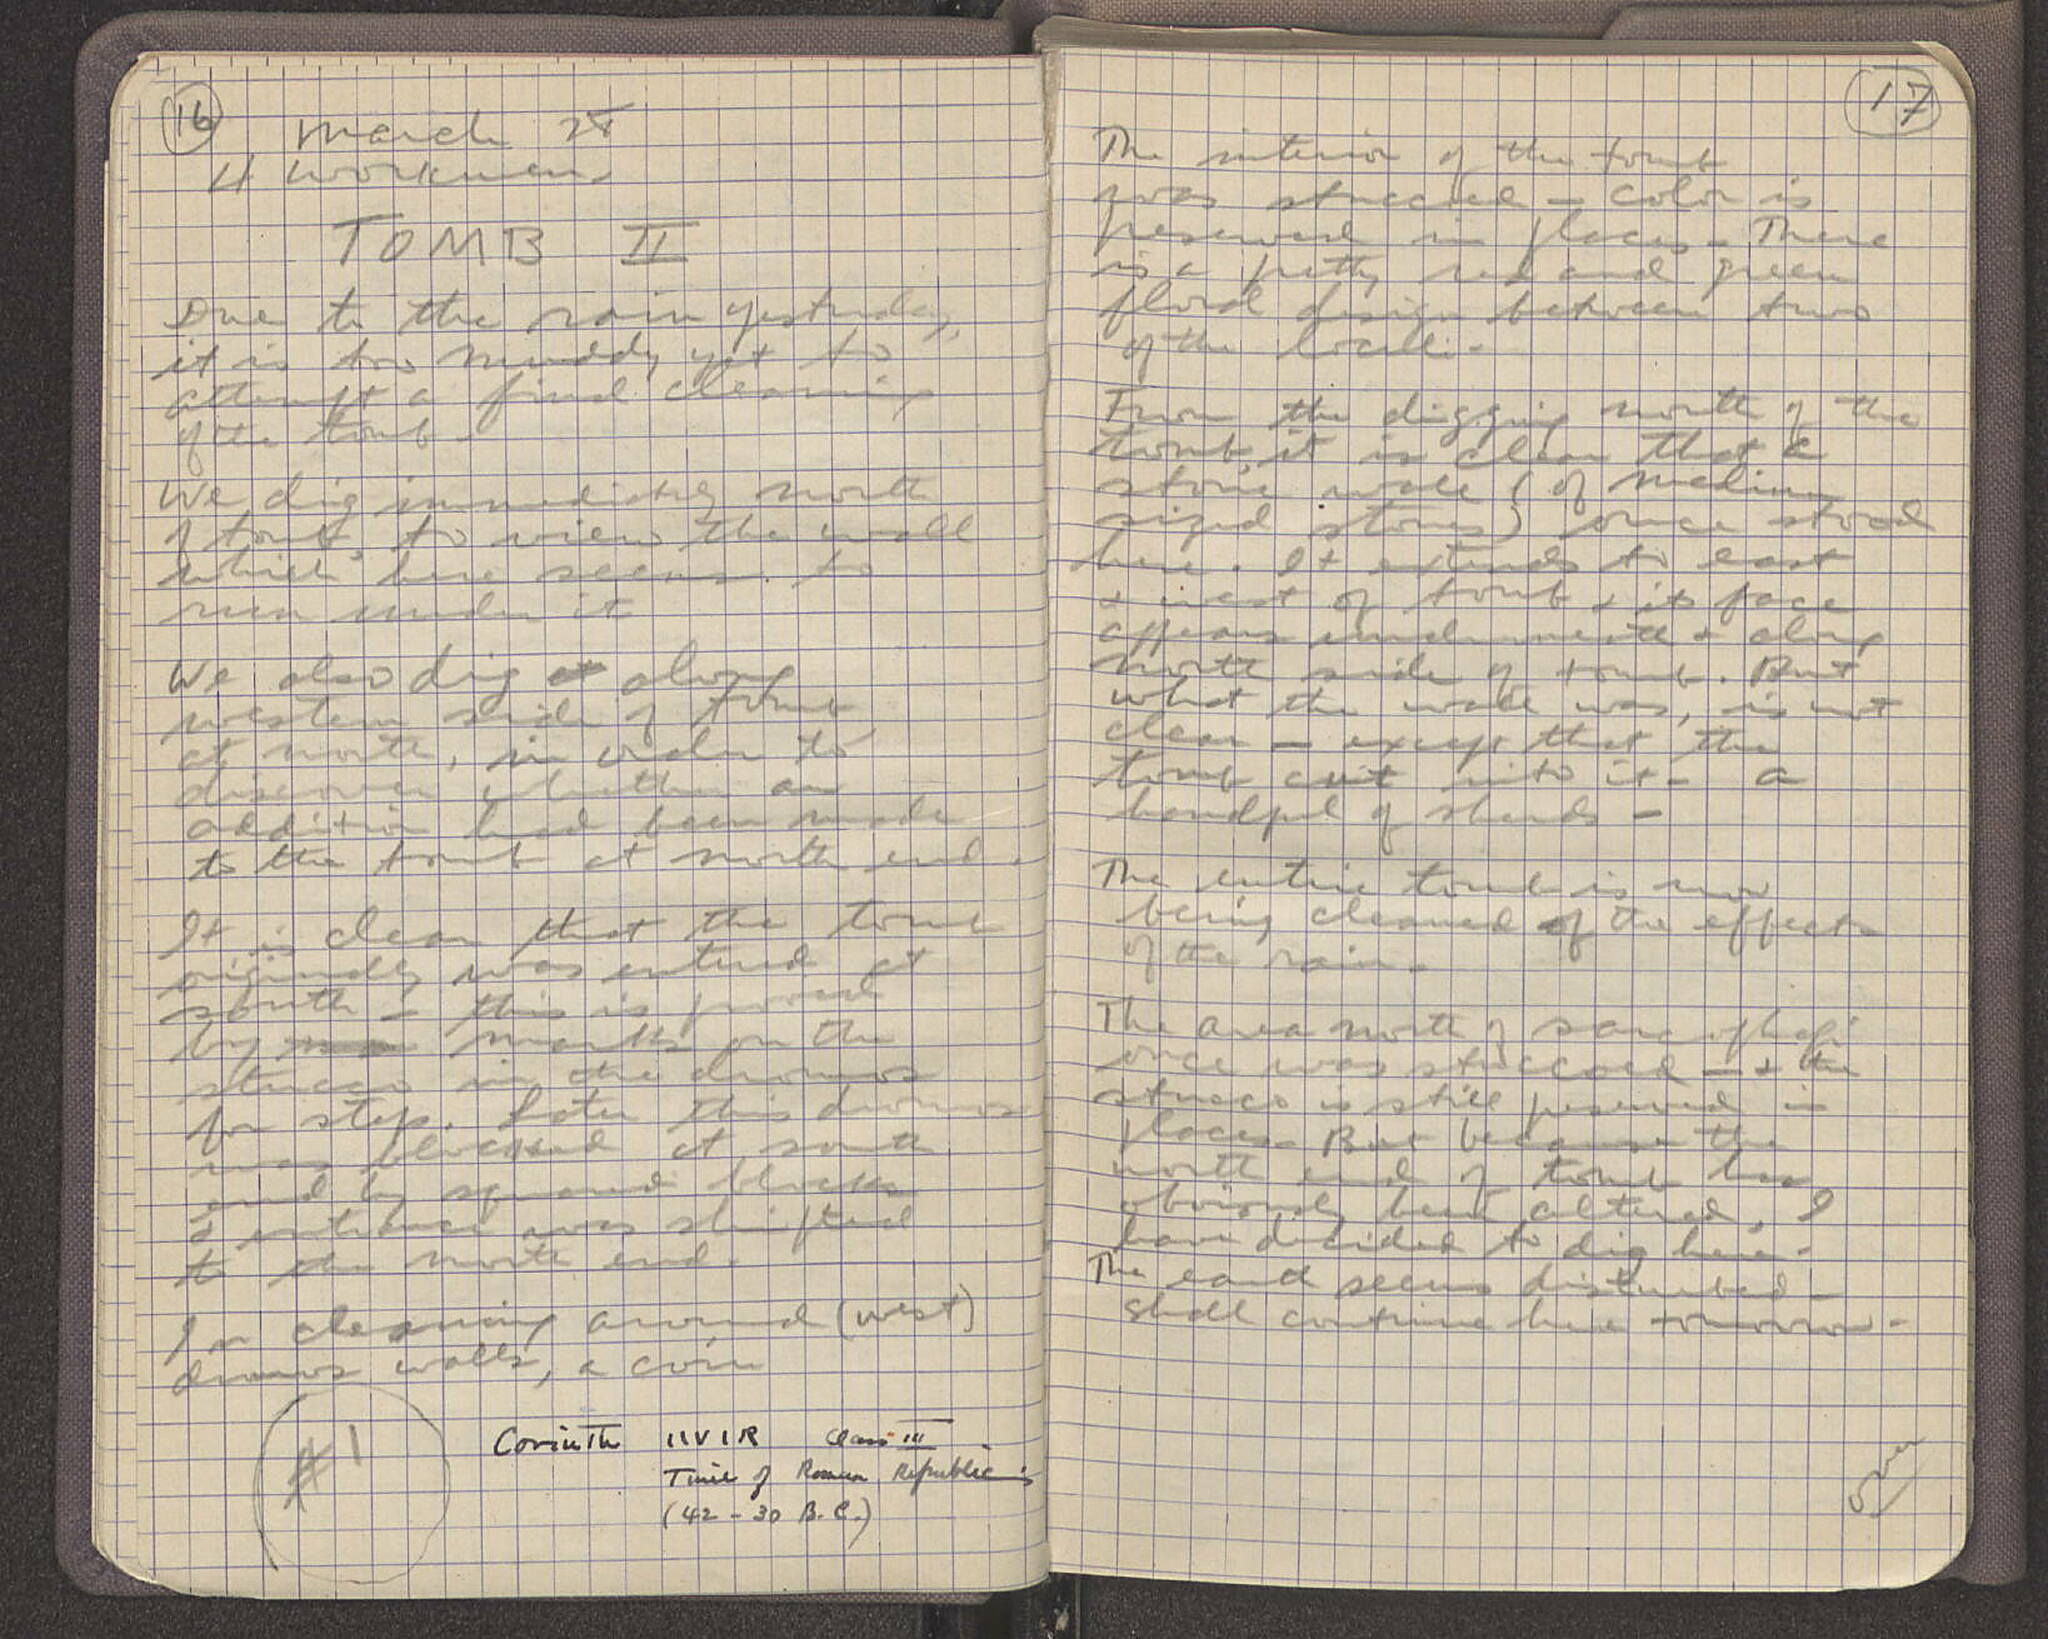 16
March 28
4 workmen
TOMB II
Due to the rain yesterday,
it is too muddy yet to
attempt a final cleaning
of the tomb.
We dig immediately north
of tomb, to view the wall
which here seems to
run under it
We also dig along
western side of tomb
at north, in order to
discover whether an
addition had been made
to the tomb at north end.
It is clear that the tomb
originally was entered at
south - this is proved
by marks on the
stucco in the dromos
for steps. Later this dromos
was blocked at south
end by squared blocks
& entrance was shifted
to the north end.
In cleaning around (west)
dromos walls, a coin
#1
Corinth IIVIR Class III
Time of Roman Republic
(42 - 30 B.C.)
17
The interior of the tomb
was stuccoed - color is
preserved in places - There
is a pretty red and green
floral design between two
of the loculi -
From the digging north of the
tomb, it is clear that a
stone wall (of medium
sized stones) once stood
here. It extends to east
& west of tomb & its face
appears underneath & along
north side of tomb. But
what the wall was, is not
clear - except that the
tomb cut into it - a
handful of sherds -
The entire tomb is now
being cleaned of the effects
of the rain -
The area north of sarcophagi
once was stuccoed - & the
stucco is still preserved in
places - But because the
north end of tomb has
obviously been altered, I
have decided to dig here -
The earth seems disturbed -
shall continue here tomorrow -
over